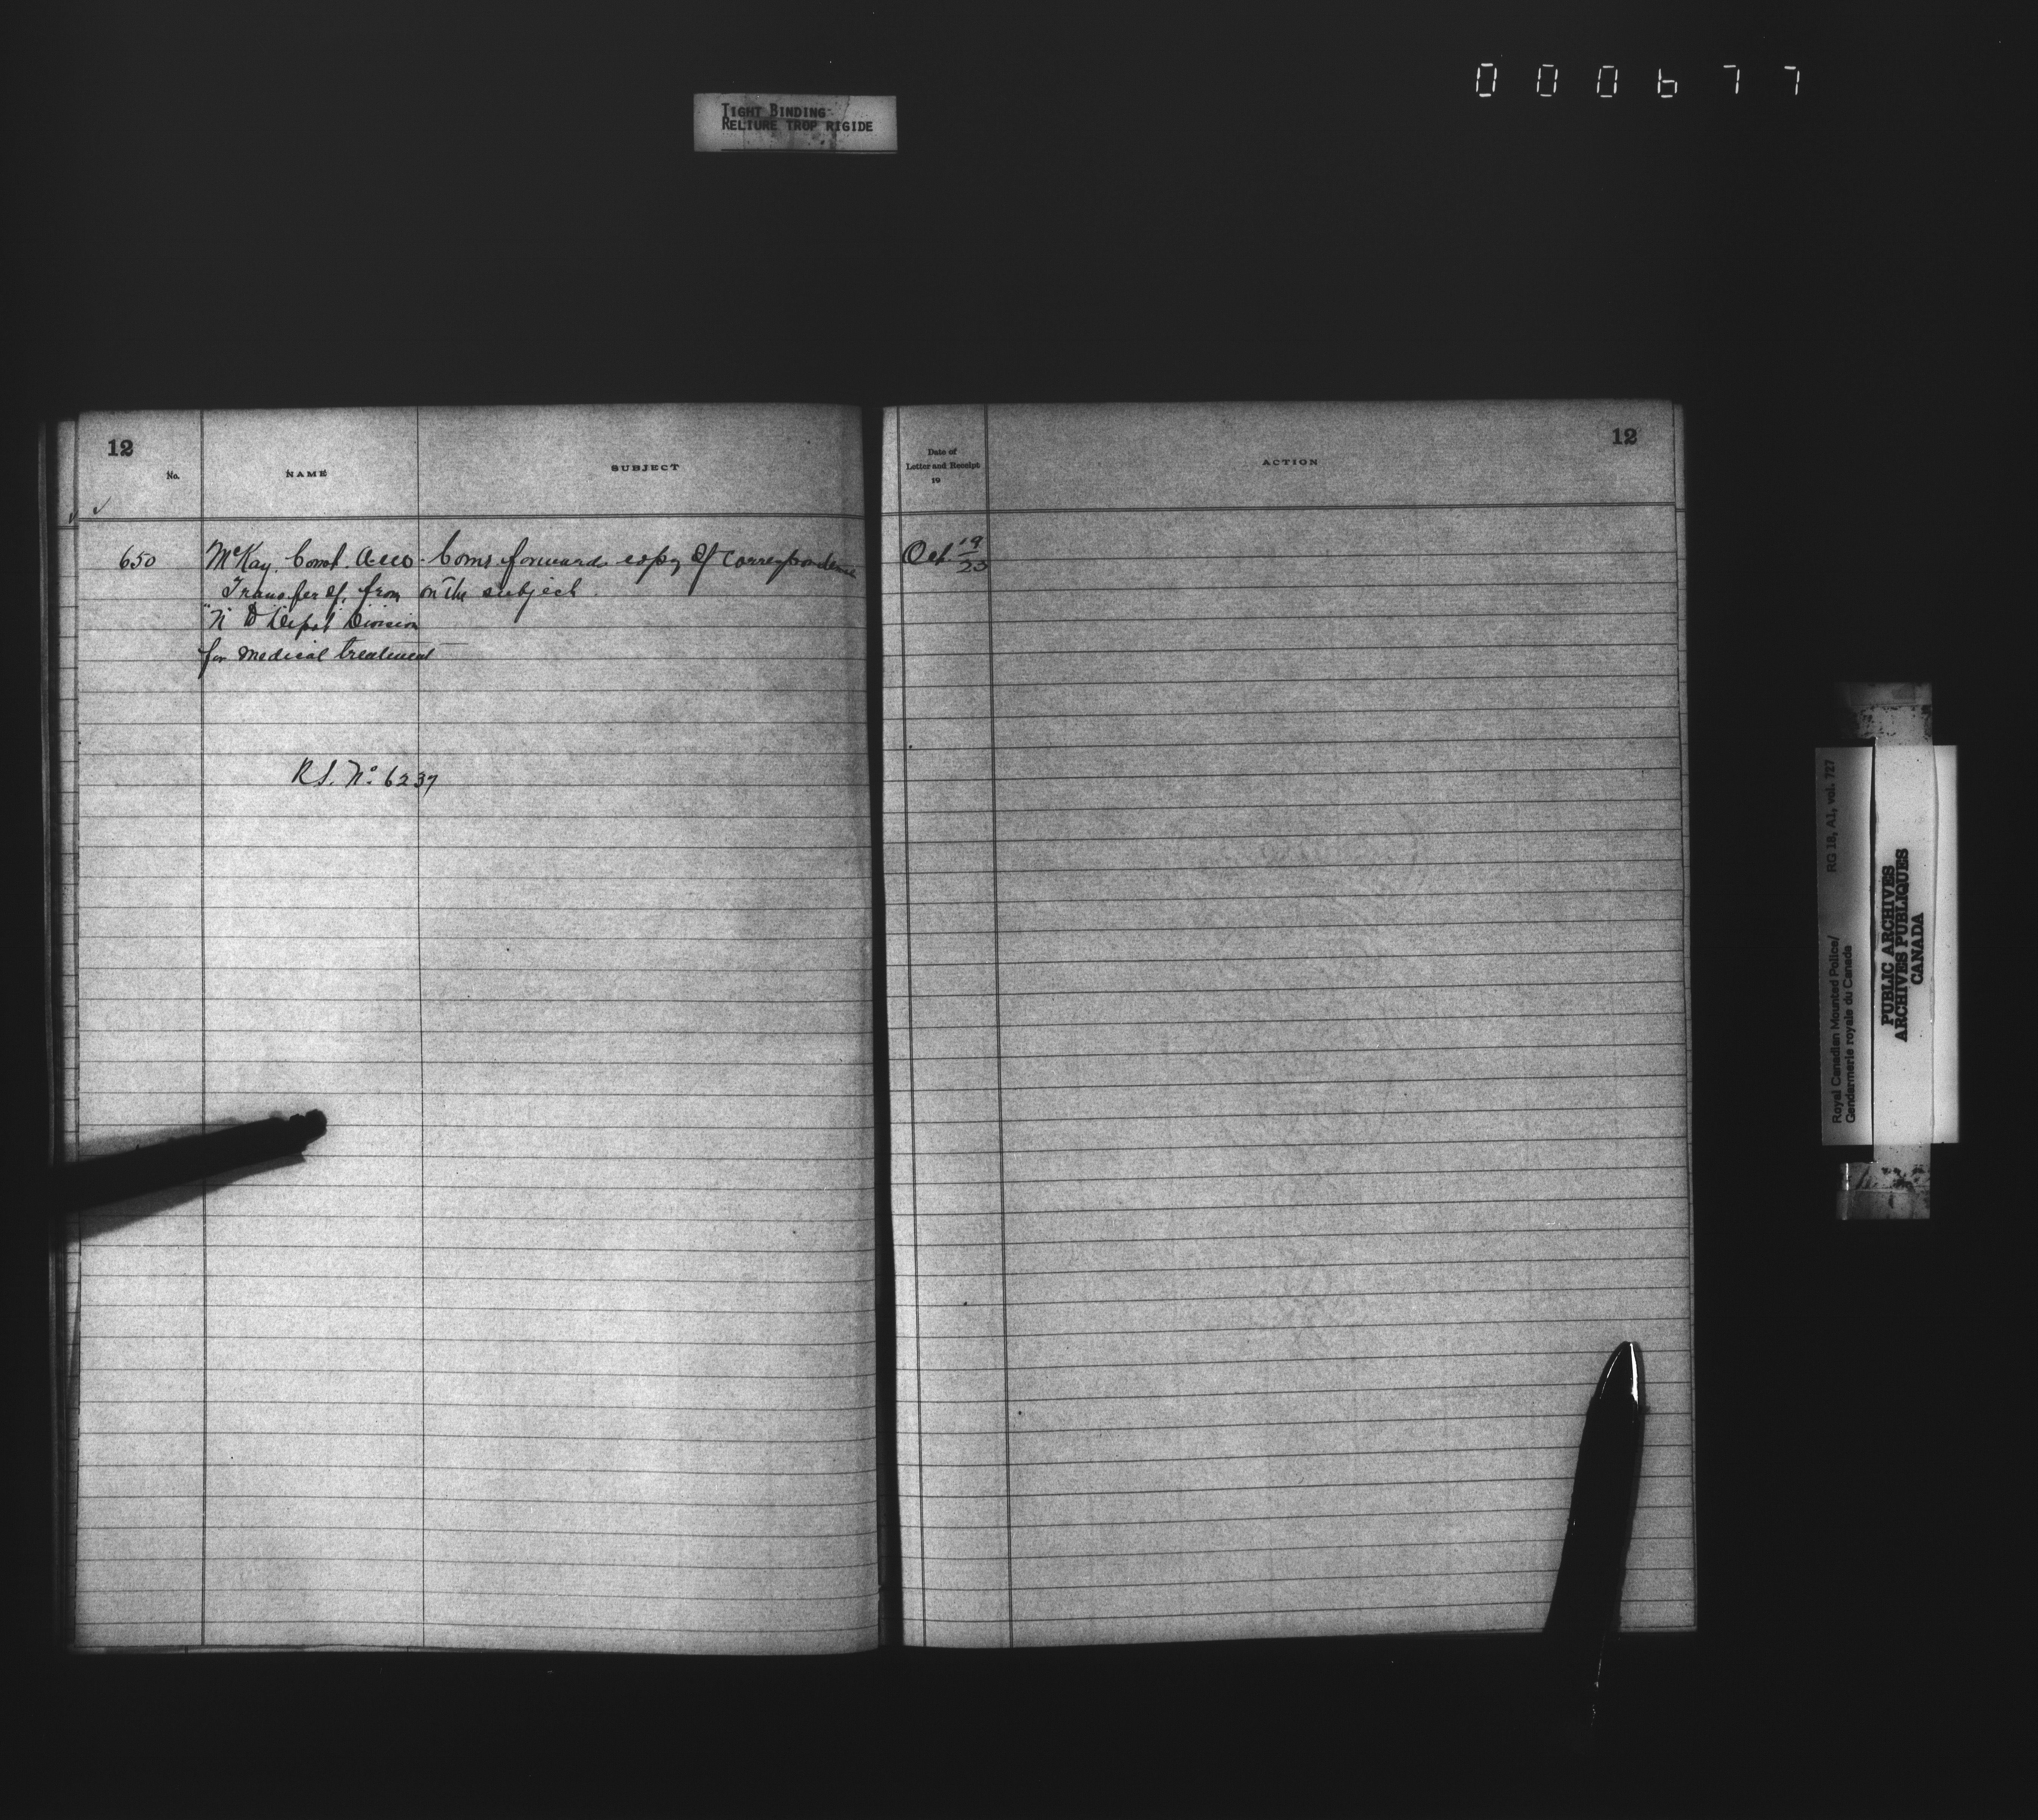 000677
TIGHT BINDING
RELIURE TROP RIGIDE
12
No.
NAME
SUBJECT
Date of
Letter and Receipt
19
ACTION
12
650
McKay, Const. A.
Transfer of, from
"N" to Depot Division
for medical treatment
Comr forwards copy of correspondence
on the subject.
Oct. 19
23
R.S. No. 6237
RG 18, A1, vol. 727
Royal Canadian Mounted Police/
Gendarmerie royale du Canada
PUBLIC ARCHIVES
ARCHIVES PUBLIQUES
CANADA